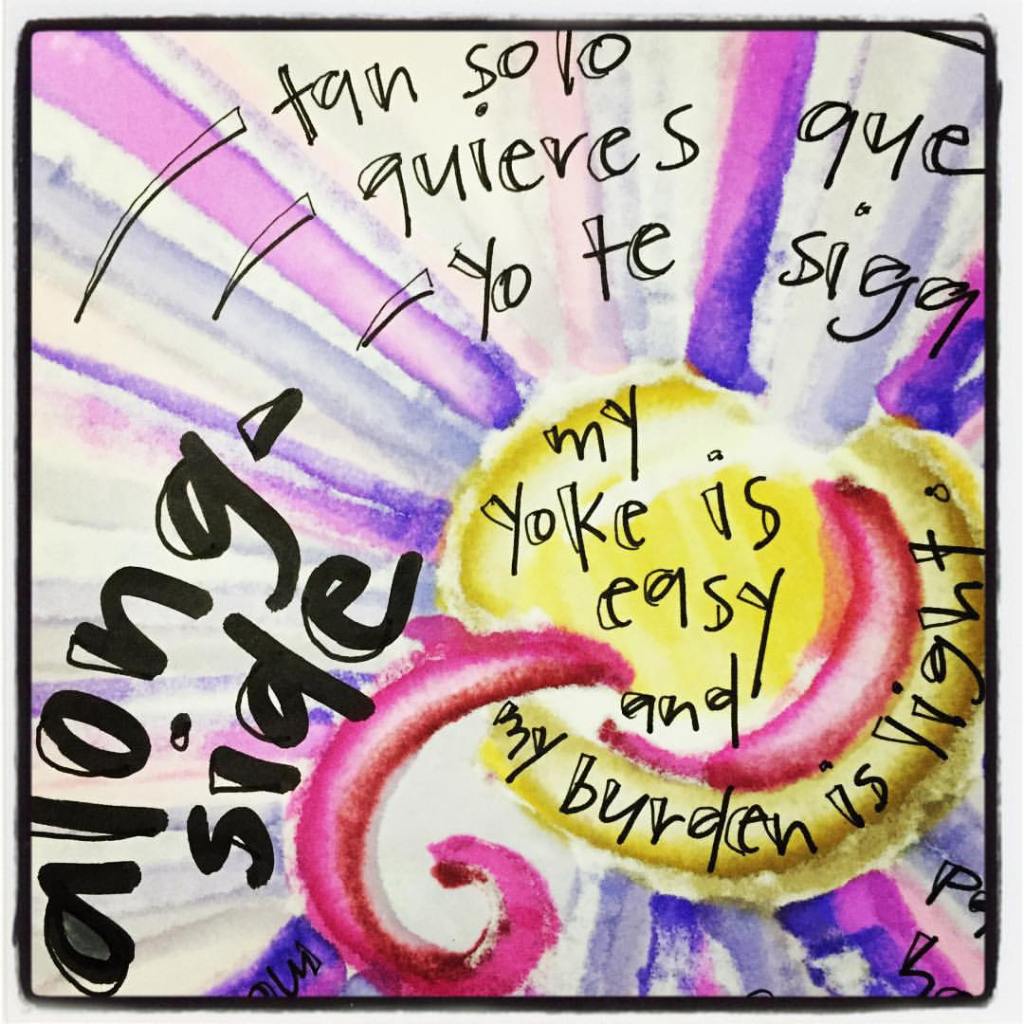 tan solo
quieres que
yo te siga
along-
side
my
yoke is
easy
and
my burden is light.